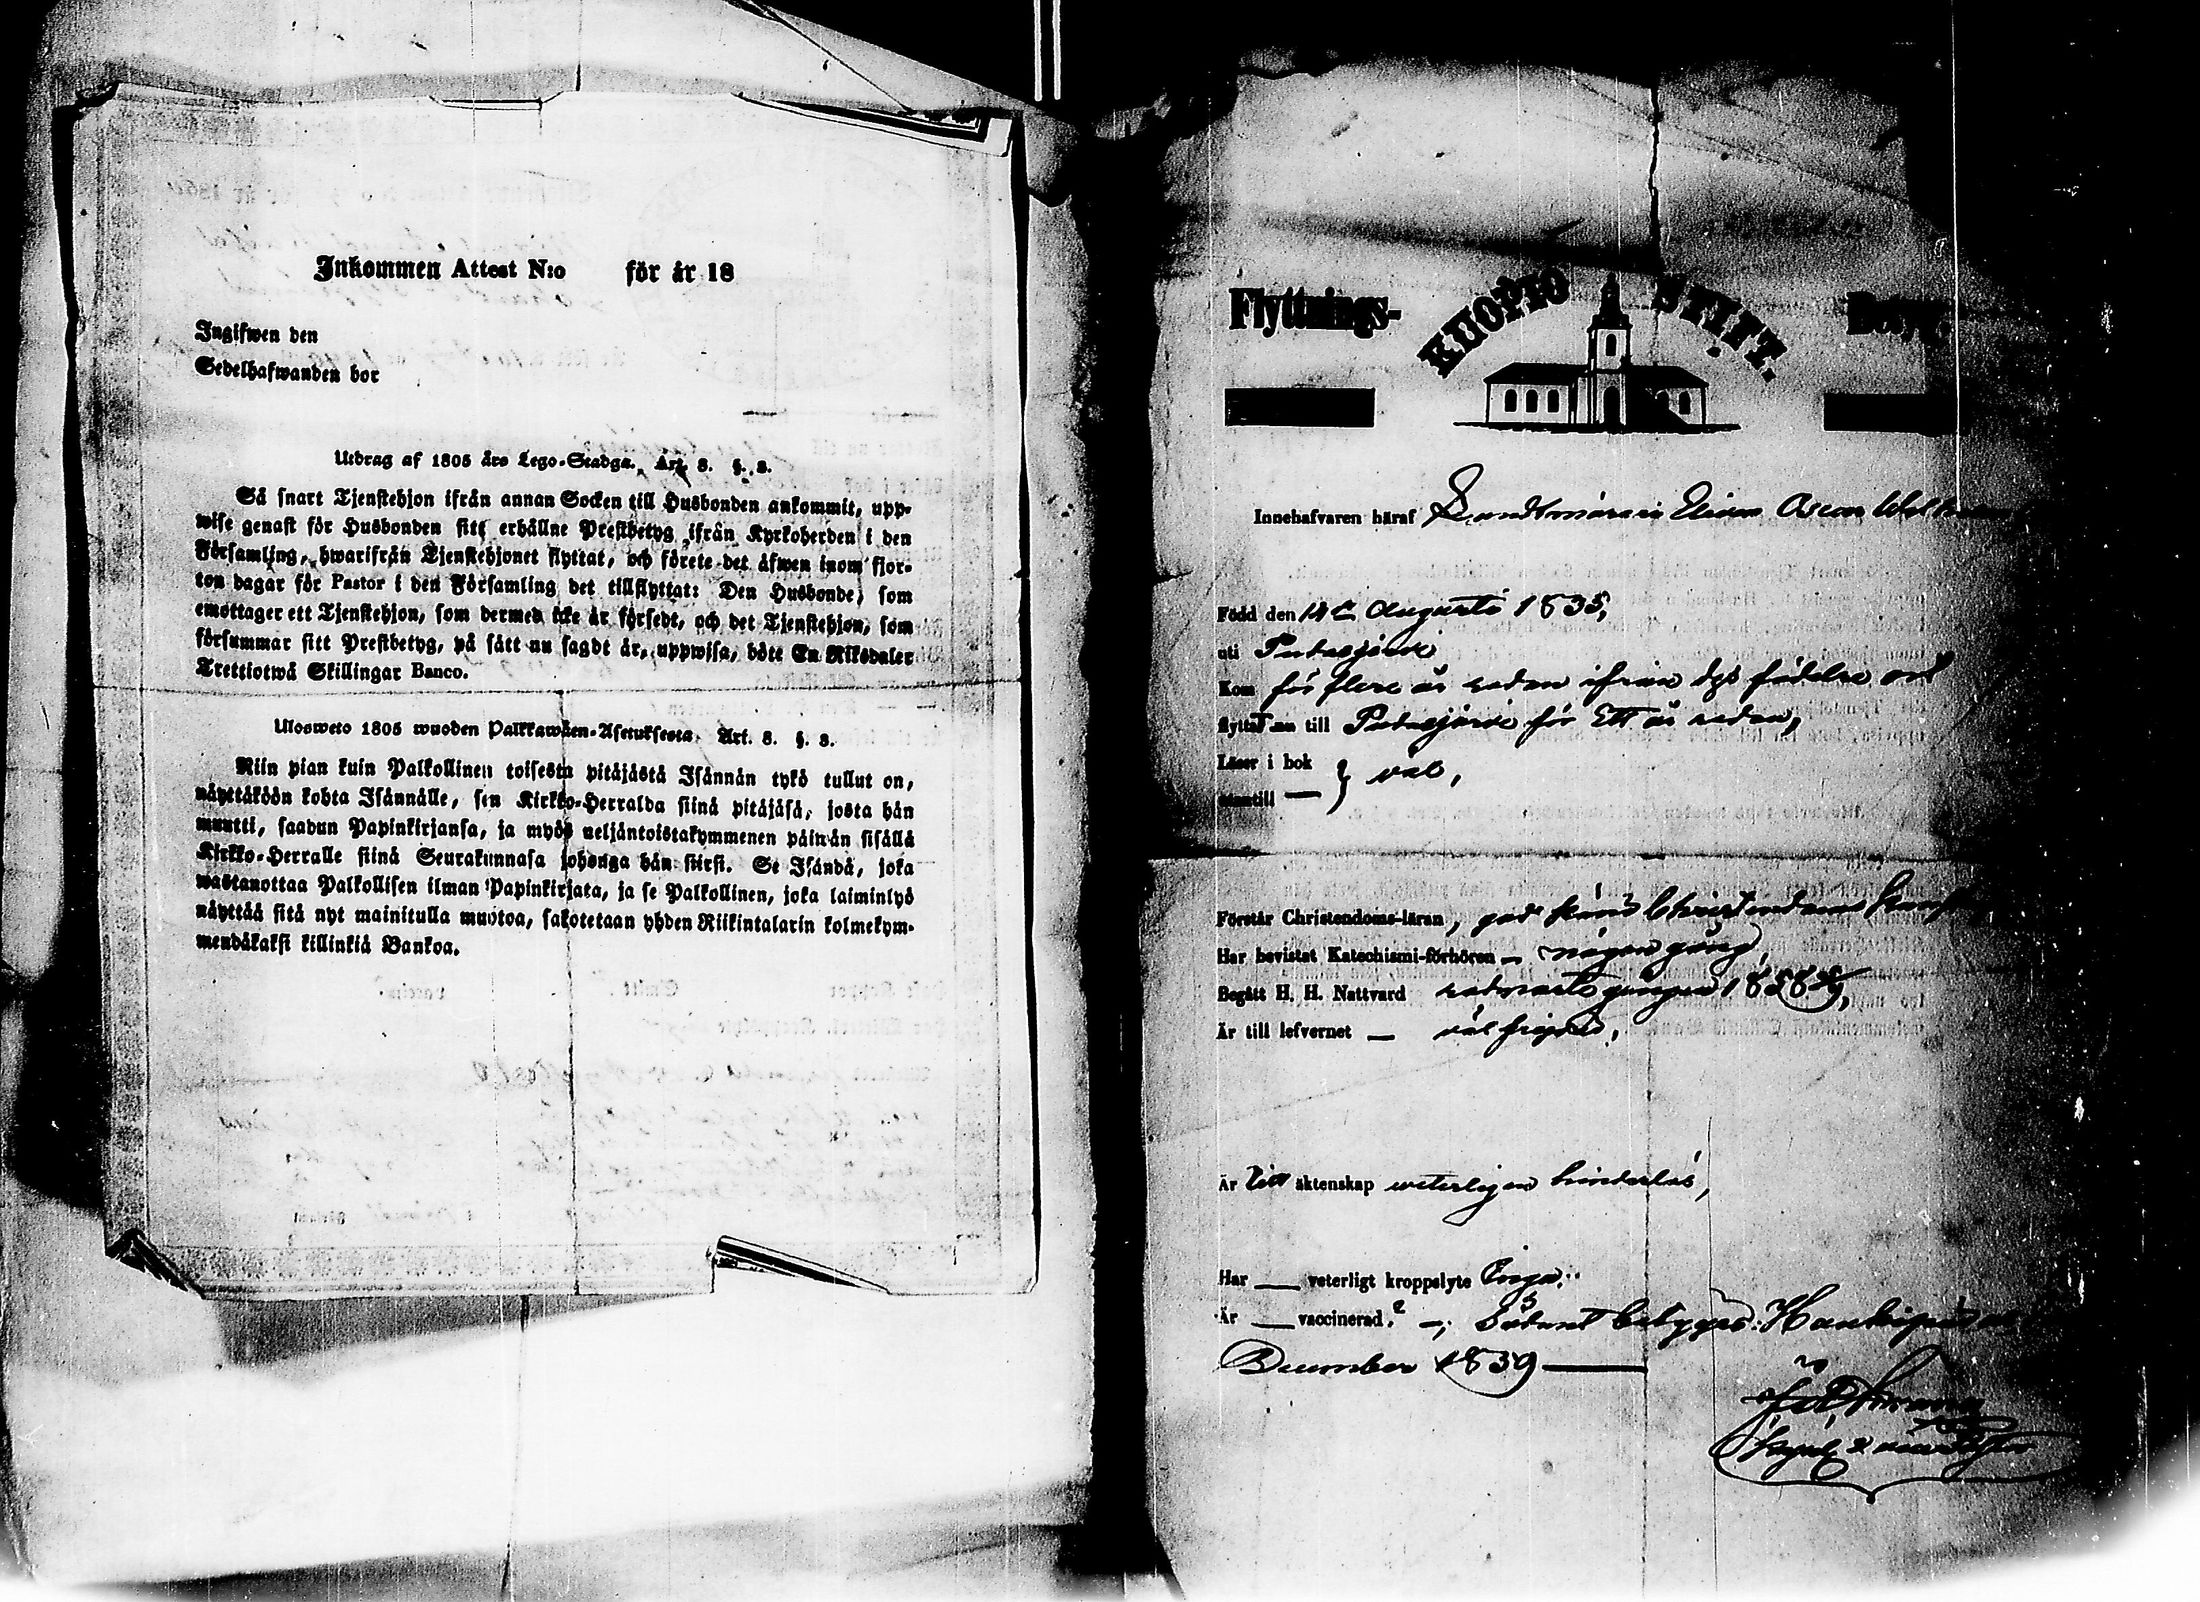 Inkommen Attest N:o för år 18
Ingifwen den
Sedelhafwanden bor
Utdrag af 1805 års Lego-Stadga. Art. 8. §. 8.
Så snart Tjenstehjon ifrån annan Socken till Husbonden ankommit, upp-
wise genast för Husbonden sitt erhållne Prestbetyg ifrån Kyrkoherden i den
Församling, hwarifrån Tjenstehjonet flyttat, och förete det äfwen inom fjor-
ton dagar för Pastor i den Församling det tillflyttat: Den Husbonde, som
emottager ett Tjenstehjon, som dermed icke är försedt, och det Tjenstehjon, som
försummar sitt Prestbetyg, på sätt nu sagdt är, uppwisa, böte En Riksdaler
Trettiotwå Skillingar Banco.
Ulosweto 1805 wuoden Palkkawäen-Asetuksesta. Art. 8. §. 8.
Niin pian kuin Palkollinen toisesta pitäjästä Isännän tykö tullut on,
näyttäköön kohta Isännälle, sen Kirkko-Herralda siinä pitäjäsä, josta hän
muutti, saadun Papinkirjansa, ja myös neljäntoistakymmenen päiwän sisällä
Kirkko-Herralle siinä Seurakunnasa johonga hän siirsi. Se Isändä, joka
wastanottaa Palkollisen ilman Papinkirjata, ja se Palkollinen, joka laiminlyö
näyttää sitä nyt mainitulla muotoa, sakotetaan yhden Riikintalarin kolmekym-
mendäkaksi killinkiä Bankoa.
Flyttnings- KUOPIO STIFT.
Innehafvaren häraf Landtmätare Oscar
Född den 14 Augusti 1835,
uti Pudasjärvi
Kom för flere år sedan ifrån dess födelse ort
flyttat till Pudasjärvi för Ett år sedan,
Läser i bok
väl,
utantill —
Förstår Christendoms-läran, god Christendoms
Har bevistat Katechismi-förhören — någon gång
Begått H. H. Nattvard
Är till lefvernet — väl frejdad,
Är till äktenskap veterligen hinderlös,
Har — veterligt kroppslyte Inga.
Är — vaccinerad. Sådant betygas:
December 1859